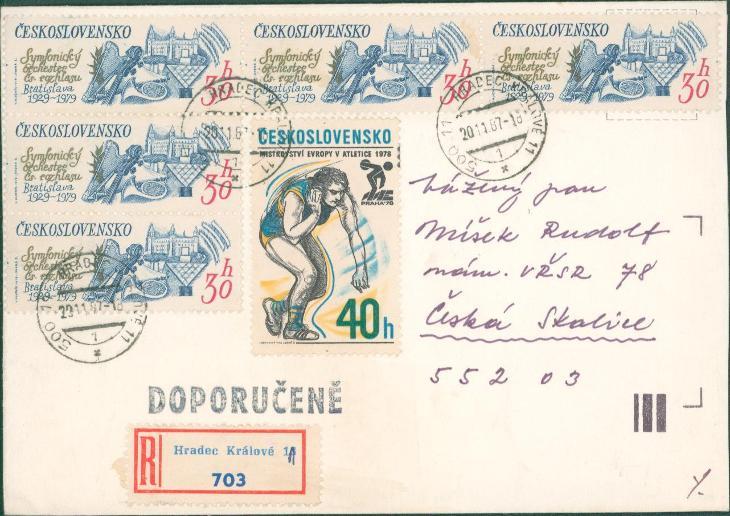 ČESKOSLOVENSKO
Symfonický
orchester
čs. rozhlasu
Bratislava
1929-1979
30h
ČESKOSLOVENSKO
Symfonický
orchester
čs. rozhlasu
Bratislava
1929-1979
30h
ČESKOSLOVENSKO
Symfonický
orchester
čs. rozhlasu
Bratislava
1929-1979
30h
ČESKOSLOVENSKO
Symfonický
orchester
čs. rozhlasu
Bratislava
1929-1979
30h
ČESKOSLOVENSKO
Symfonický
orchester
čs. rozhlasu
Bratislava
1929-1979
30h
HRADEC KRÁLOVÉ 11
500 11
20.11.87-18
1
ČESKOSLOVENSKO
MISTROVSTVÍ EVROPY V ATLETICE 1978
PRAHA '78
40h
Vážený pan
Míšek Rudolf
nám. VŘSR 78
Česká Skalice
552 03
DOPORUČENĚ
R
Hradec Králové 11
703